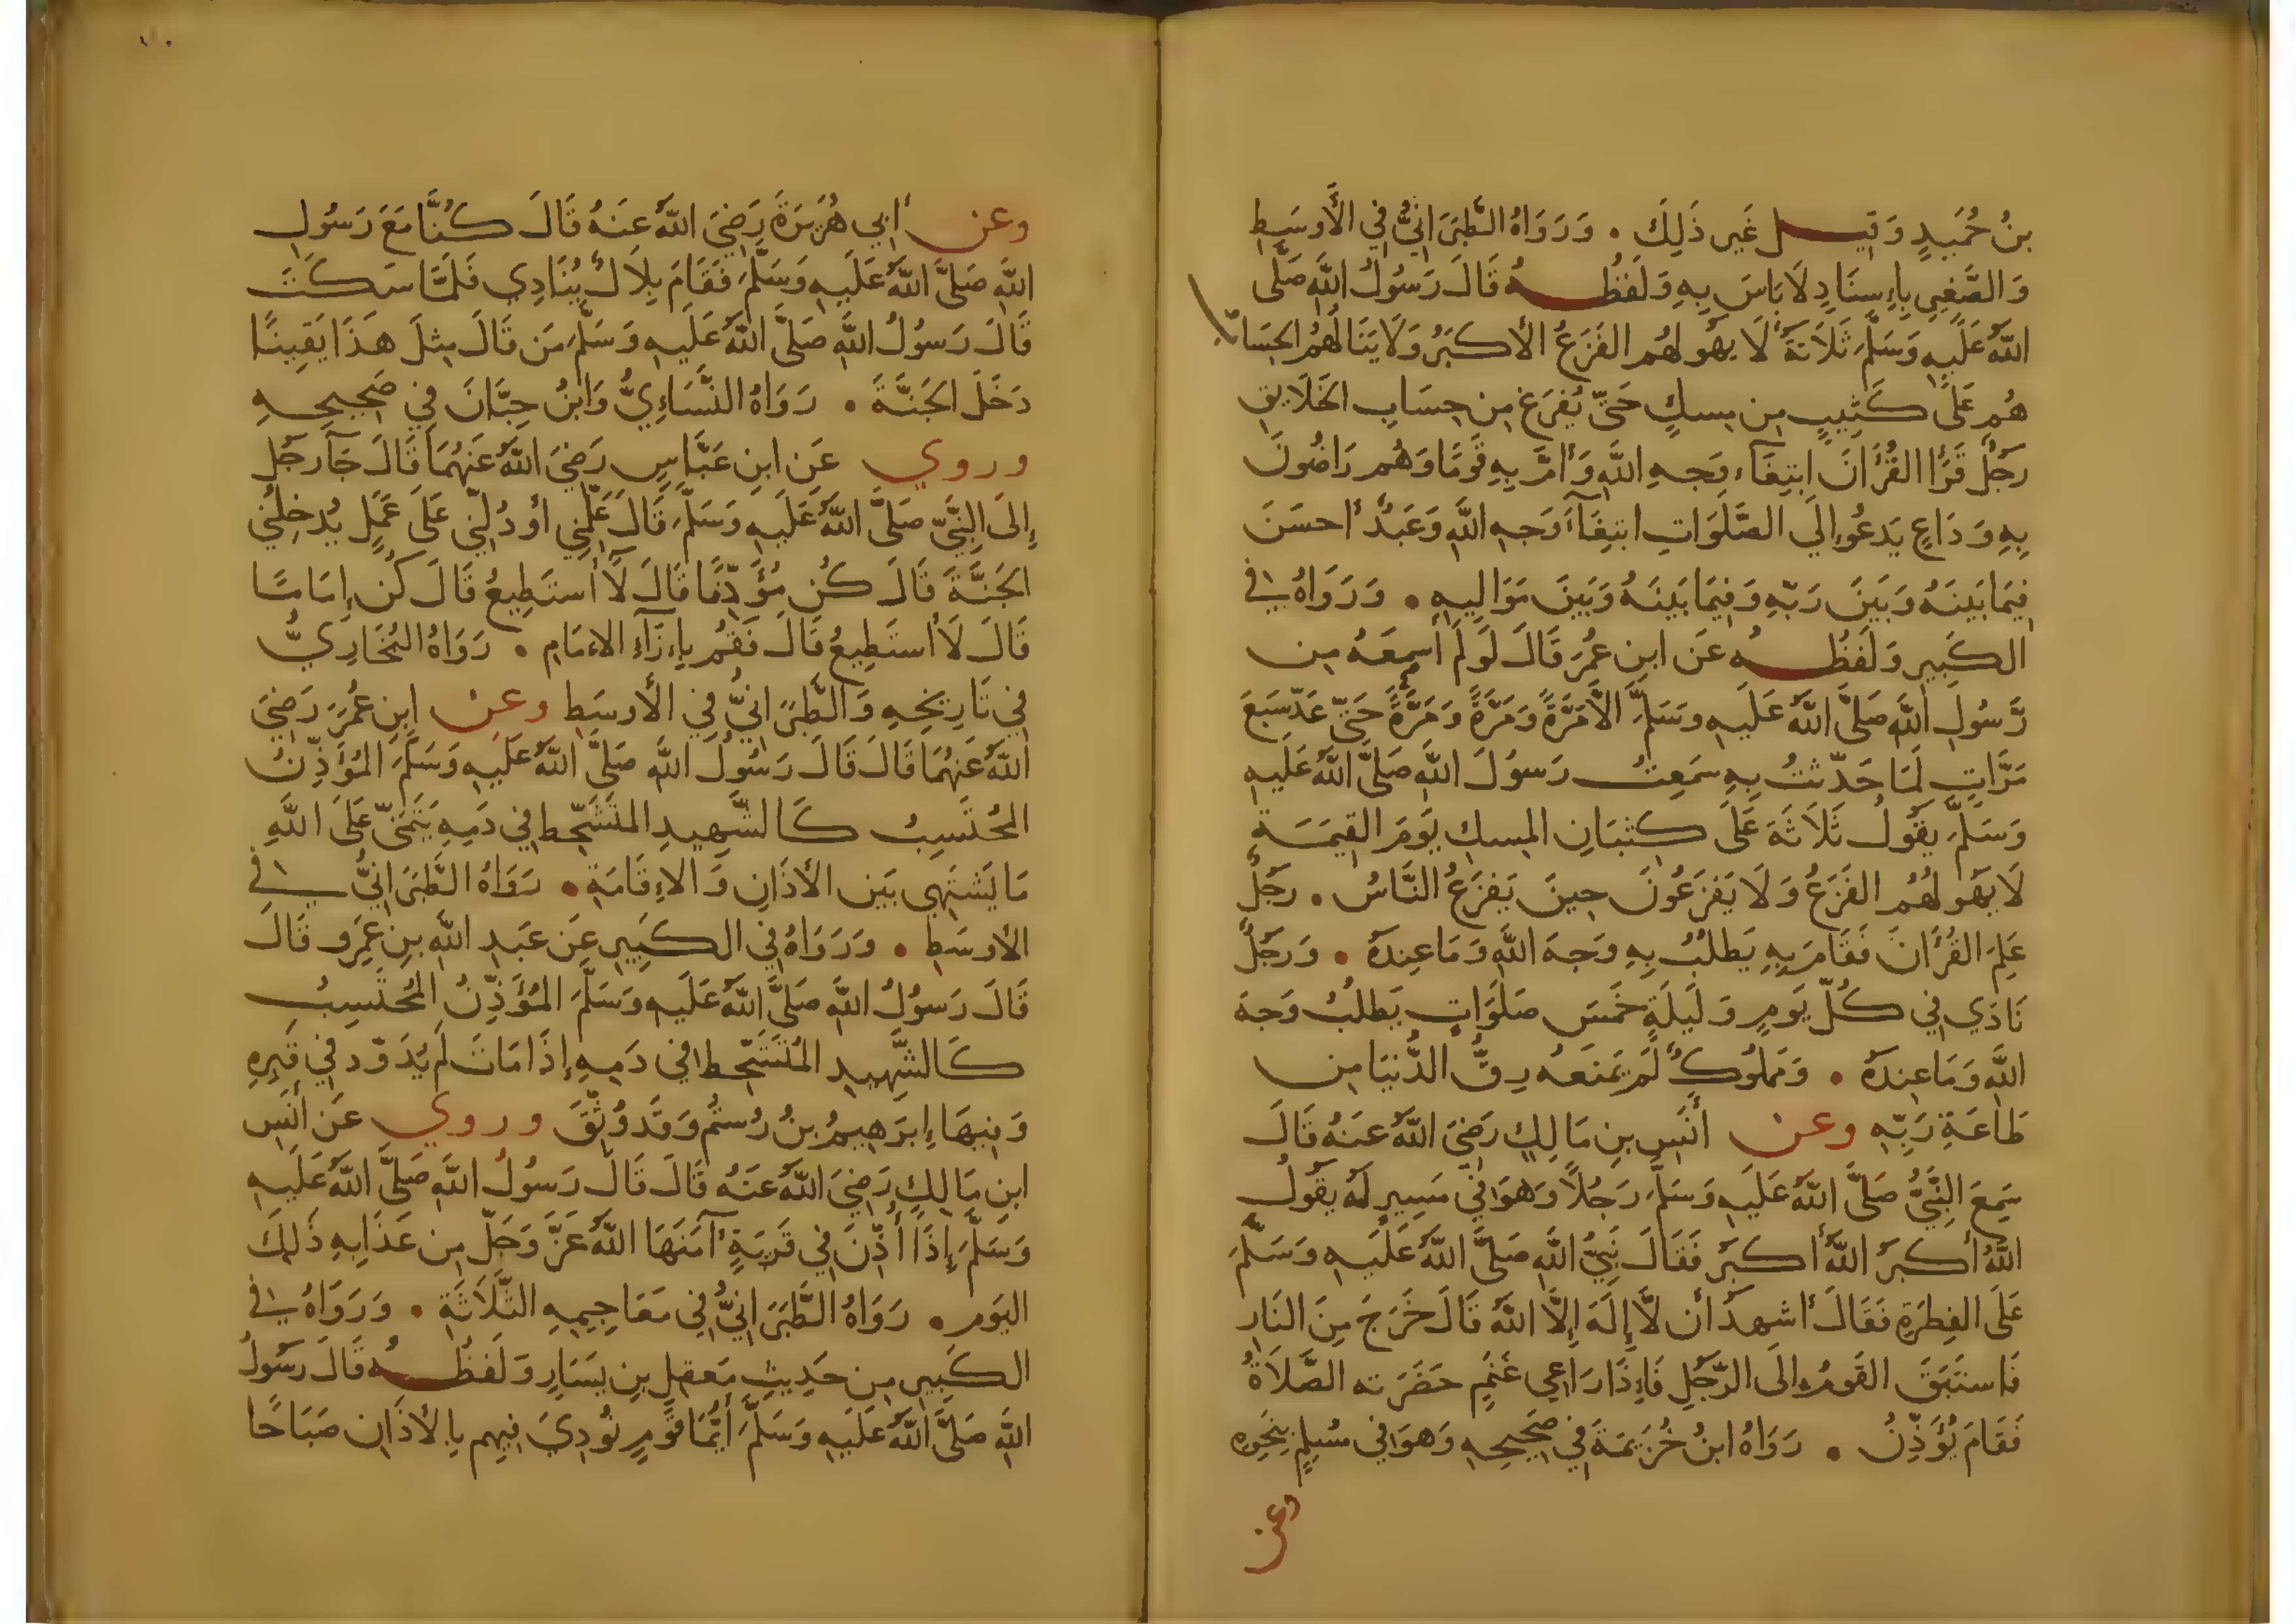 بنُ حُمَيدٍ وَقِيلَ غَير ذَلِكَ . وَرَوَاهُ الطَّبَرَانِيُّ فِي الأَوسَطِ
وَالصَّغِيرِ بِإِسنَادٍ لَا بَاسَ بِهِ وَلَفظُهُ قَالَ رَسُولُ اللَّهِ صَلَّى
اللَّهُ عَلَيهِ وَسَلَّمَ ثَلَاثَةٌ لَا يَهُولهُم الفَزَعُ الأَكبَرُ وَلَا يَنَالهُم الحِسَابُ
هُم عَلَى كَثِيبٍ مِن مِسكٍ حَتَّى يُفرَغ مِن حِسَابِ الخَلَايِقِ
رَجُلٌ قَرَأَ القُرْآنَ ابتِغَاءَ وَجهِ اللَّهِ وَأَمَّ بِهِ قَومًا وَهُم رَاضُونَ
بِهِ وَدَاعٍ يَدعُو إِلَى الصَّلَوَاتِ ابتِغَآءَ وَجهِ اللَّهِ وَعَبدٌ أَحسَنَ
فِيمَا بَينَهُ وَبَينَ رَبِّهِ وَفِيمَا بَينَهُ وَبَينَ مَوَالِيهِ . وَرَوَاهُ فِي
الكَبِيرِ وَلَفظُهُ عَن ابنِ عُمَرَ قَالَ لَو لَم أَسمَعهُ مِن
رَّسُولِ اللَّهِ صَلَّى اللَّهُ عَلَيهِ وَسَلَّمَ الَّا مَرَّةً وَمَرَّةً وَمَرَّةً حَتَّى عَدّ سَبعَ
مَرَّاتٍ لَمَا حَدَّثتُ بِهِ سَمِعتُ رَسُولَ اللَّهِ صَلَّى اللَّهُ عَلَيهِ
وَسَلَّمَ يَقُولُ ثَلَاثَةَ عَلَى كثبَانِ المِسكِ يَومَ القِيمَةِ
لَا يَهُولهُمُ الفَزَعُ وَلَا يَفزَعُونَ حِينَ يَفزَعُ النَّاسُ . رَجُلٌ
عَلِمَ القُرْآنَ فَقَامَ بِهِ يَطلُبُ بِهِ وَجهَ اللَّهِ وَمَا عِندَهُ . وَرَجُلٌ
نَادَى فِي كُلِّ يَومٍ وَلَيلَةٍ خَمسَ صَلَوَاتٍ يَطلُبُ وَجهَ
اللَّهِ وَمَا عِندَهُ . وَمَملُوكٌ لَم يَمنَعهُ رِقُّ الدُّنيَا مِن
طَاعَةِ رَبِّهِ وعن أَنَسِ بنِ مَالِكٍ رَضِيَ اللَّهُ عَنهُ قَالَ
سَمِعَ النَّبِيُّ صَلَّى اللَّهُ عَلَيهِ وَسَلَّمَ رَجُلًا وَهوَ فِي مَسِيرٍ لَهُ يَقُولُ
اللَّهُ أَكبَرُ اللَّهُ أَكبَرُ فَقَالَ نَبِيُّ اللَّهِ صَلَّى اللَّهُ عَلَيهِ وَسَلَّمَ
عَلَى الفِطرَةِ فَقَالَ أَشهَدُ أَن لَّا إِلَهَ إِلَّا اللَّهُ قَالَ خَرَجَ مِنَ النَارِ
فَاستَبَقَ القَومُ إلَى الرَّجُلِ فَإِذَا رَاعِي غَنَمٍ حَضَرَته الصَّلَاةُ
فَقَامَ يُؤَذِّنُ . رَوَاهُ ابنُ خُزَيمَةَ فِي صَحِيحِهِ وَهوَ فِي مُسلِمٍ بِنَحوِهِ
وعن
وعن أَبِي هُرَيرَةَ رَضِيَ اللَّهُ عَنهُ قَالَ كُنَّا مَعَ رَسُولِ
اللَّهِ صَلَّى اللَّهُ عَلَيهِ وَسَلَّمَ فَقَامَ بِلَالٌ يُنَادِي فَلَمَّا سَكَتَ
قَالَ رَسُولُ اللَّهِ صَلَّى اللَّهُ عَلَيهِ وَسَلَّمَ مَن قَالَ مِثلَ هَذَا يَقِينًا
دَخَلَ الجَنَّةَ . رَوَاهُ النَّسَاءِيُّ وَابنُ حِبَّانَ فِي صَحِيحِهِ
وروي عَن ابنِ عَبَّاسٍ رَضِيَ اللَّهُ عَنهُمَا قَالَ جَآ رَجُل
إِلَى النَّبِيِّ صَلَّى اللَّهُ عَلَيهِ وَسَلَّمَ قَالَ عَلِّمنِي أَو دُلَّنِي عَلَى عَمَلٍ يُدخِلُنِي
الجَنَّةَ قَالَ كُن مُؤَذِّنًا قَالَ لَآ أَستَطِيعُ قَالَ كُن إِمَامًا
قَالَ لَا أَستَطِيعُ قَالَ فَقُم بِإِزَآءِ الإِمَامِ . رَوَاهُ البُخَارِيُّ
فِي تَارِيخِهِ وَالطَّبَرَانِيُّ فِي الأَوسَطِ وعن ابنِ عُمَرَ رَضِيَ
اللَّهُ عَنهُمَا قَالَ قَالَ رَسُولُ اللَّهِ صَلَّى اللَّهُ عَلَيهِ وَسَلَّمَ المُؤَذِّنُ
المُحتَسِبُ كَالشَّهِيدِ المتَشَحِّط فِي دَمِهِ يَتَمَنَّى عَلَى اللَّهِ
مَا يَشتَهِي بَين الأَذَانِ وَالإِقَامَةِ . رَوَاهُ الطَّبَرَانِيُّ فِي
الأَوسَطِ . وَرَوَاهُ فِي الكَبِيرِ عَن عَبدِ اللَّهِ بنِ عَمرٍو قَالَ
قَالَ رَسُولُ اللَّهِ صَلَّى اللَّهُ عَلَيهِ وَسَلَّمَ المُؤَذِّنُ المُحتَسِبُ
كَالشَّهِيدِ المُتَشَحِّطِ فِي دَمِهِ إِذَا مَاتَ لَم يُدَوَّد فِي قَبرِهِ
وَفِيهَا إِبرَهِيمُ بنُ رُستُم وَقَد وُثِّقَ وروي عَن أَنَسِ
ابنِ مَالِكٍ رَضِيَ اللَّهُ عَنهُ قَالَ قَالَ رَسُولُ اللَّهِ صَلَّى اللَّهُ عَلَيهِ
وَسَلَّمَ إِذَا أُذِّنَ فِي قَريَةٍ آمَنَهَا اللَّهُ عَزَّ وَجَلَّ مِن عَذَابِهِ ذَلِكَ
اليَوم . رَوَاهُ الطَّبَرَانِيُّ فِي مَعَاجِيمِهِ الثَّلَاثَةِ . وَرَوَاهُ فِي
الكَبِيرِ مِن حَدِيثِ مَعقِلِ بنِ يَسَارٍ وَلَفظُهُ قَالَ رَسُولُ
اللَّهِ صَلَّى اللَّهُ عَلَيهِ وَسَلَّمَ أَيُّمَا قَومٍ نُودِيَ فِيهِم بِالأَذَانِ صَبَاحًا